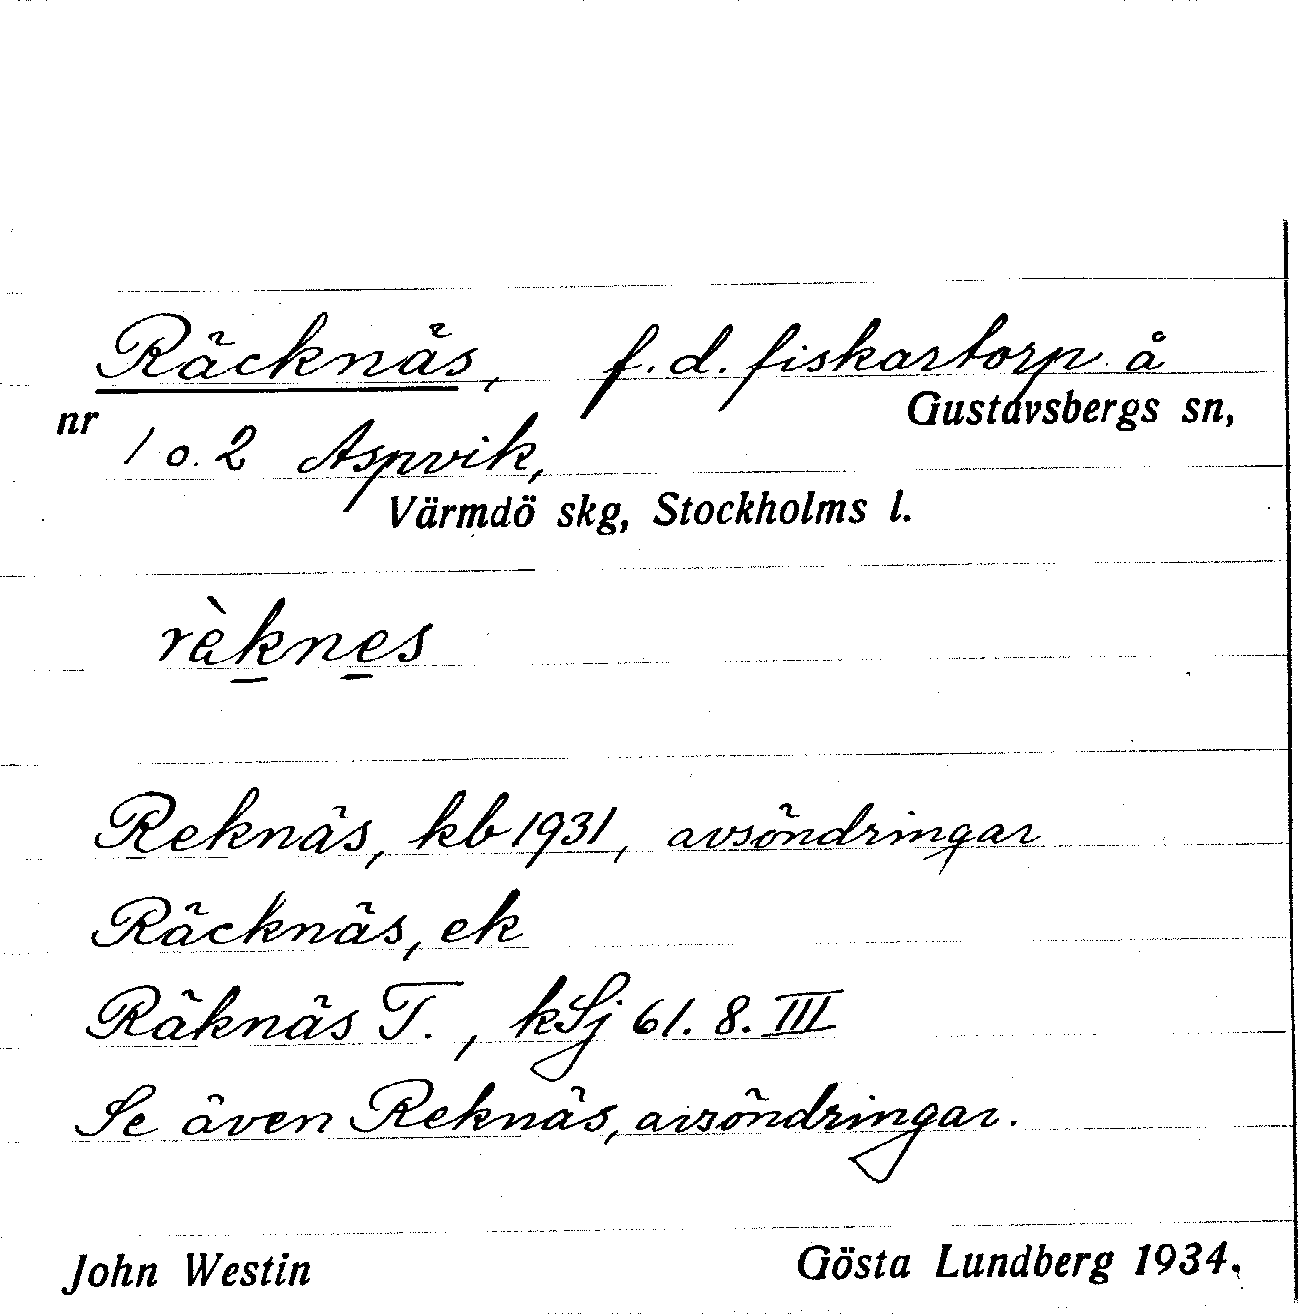 Räcknäs, f. d. fiskartorp å
nr Gustavsbergs sn,
1 o. 2 Aspvik,
Värmdö skg, Stockholms l.
rèknes
Reknäs, kb 1931, avsöndringar
Räcknäs, ek
Räknäs T., kSj 61. 8. III
Se även Reknäs, avsöndringar.
John Westin Gösta Lundberg 1934.